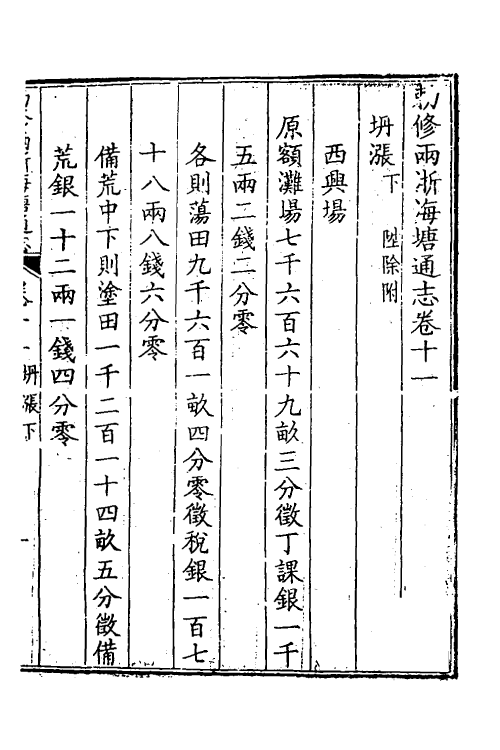 勅修兩浙海塘通志卷十一
坍漲下 陞除附
西興場
原額灘場七千六百六十九畝三分徵丁課銀一千
五兩二錢二分零
各則蕩田九千六百一畝四分零徵稅銀一百七
十八兩八錢六分零
備荒中下則塗田一千二百一十四畝五分徵備
荒銀一十二兩一錢四分零
坍漲下